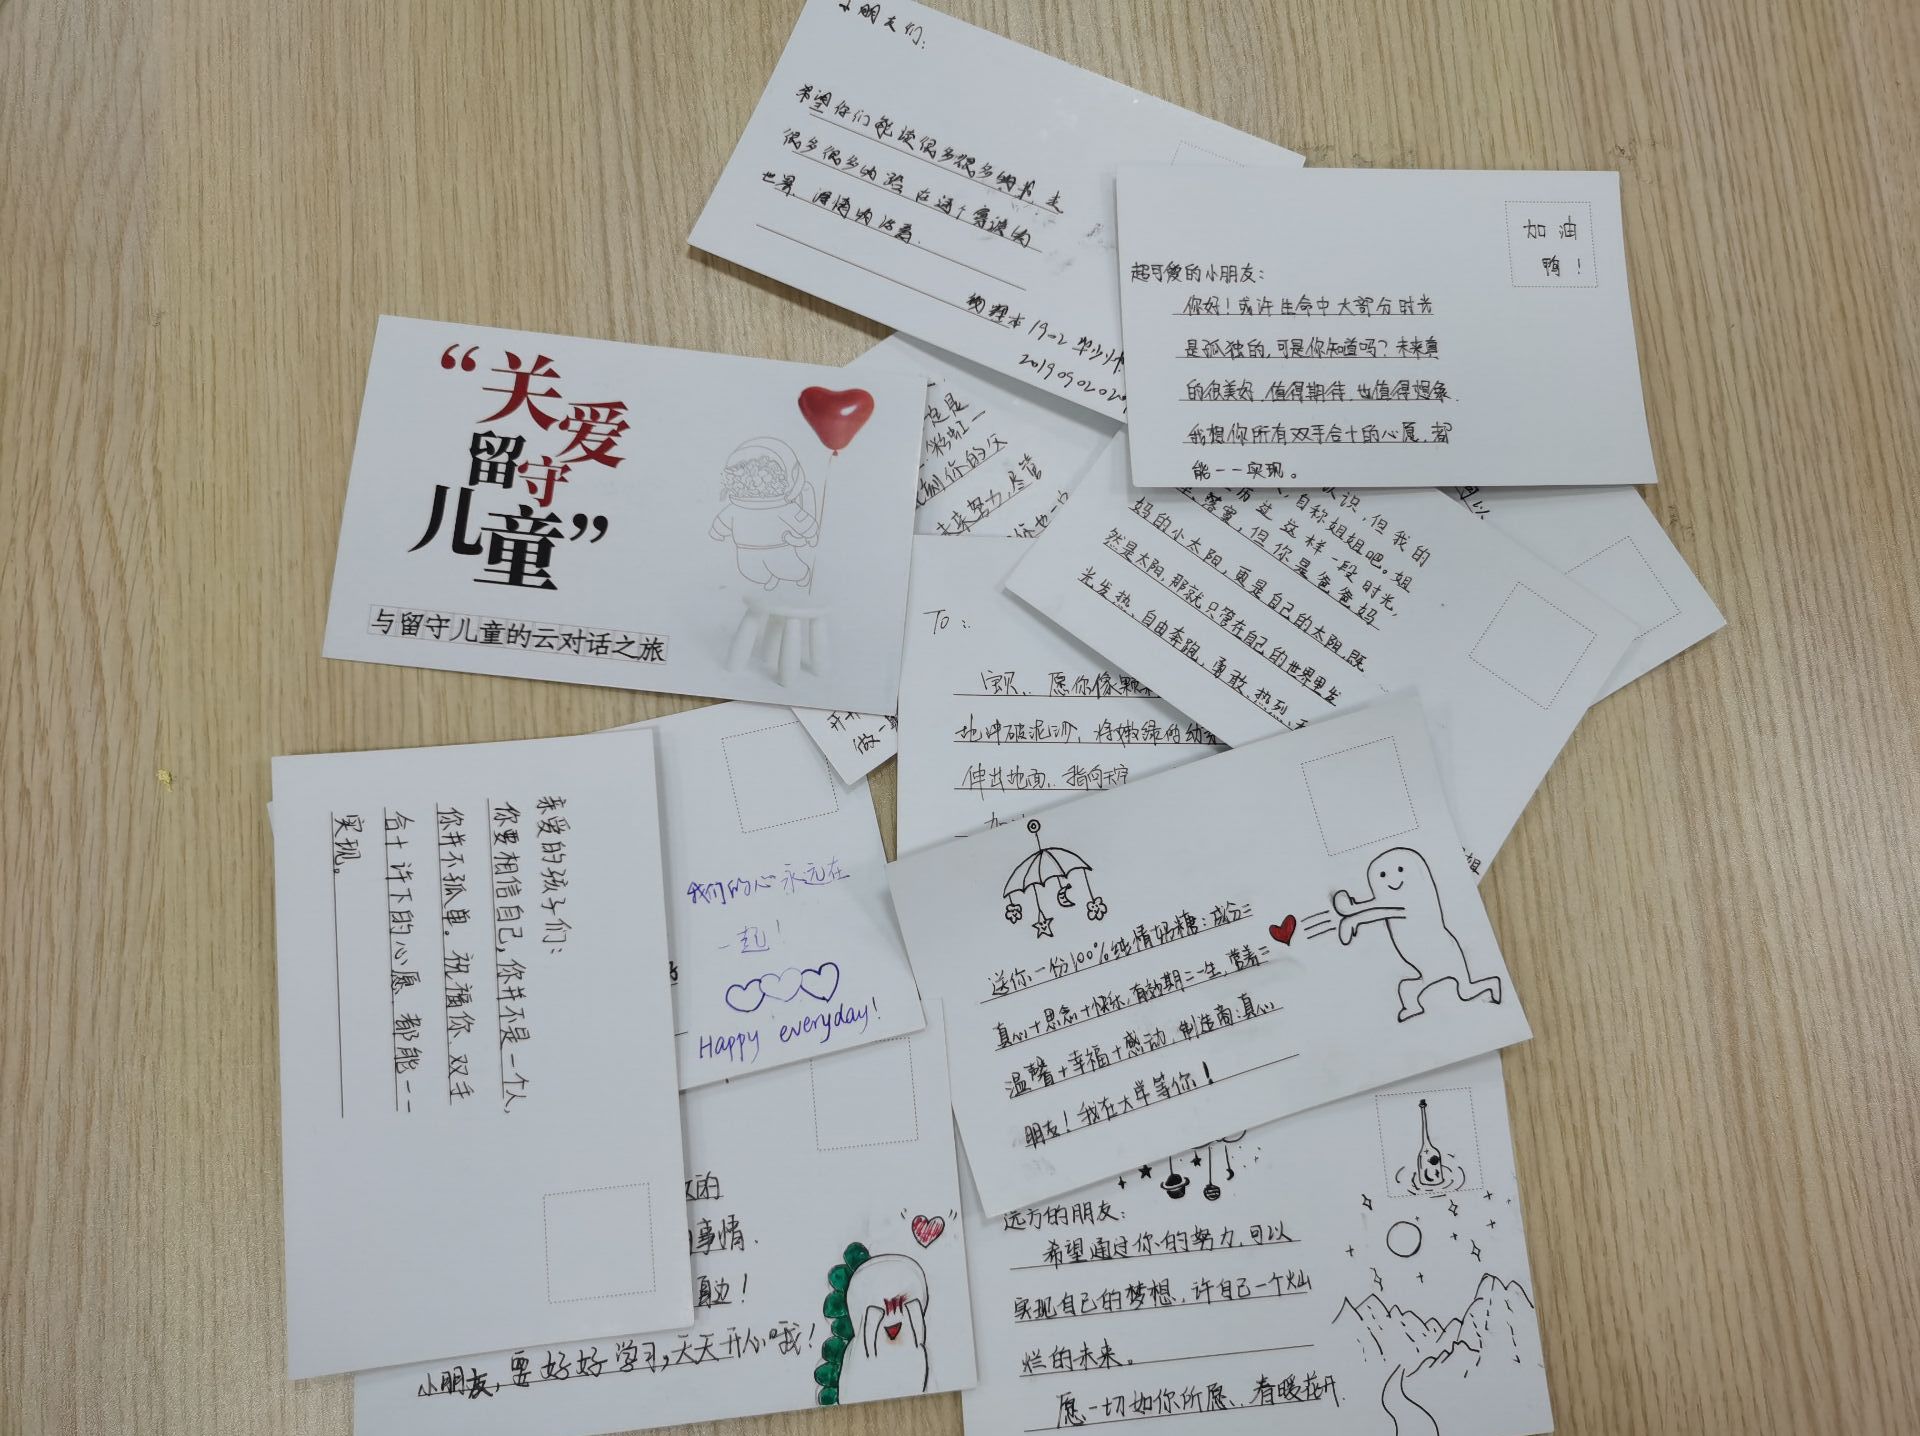 小朋友们：
希望你们能读很多很多的书，走
很多很多的路，在这个寡淡的
世界，深情的活着。
物理本19-02
加油
鸭！
超可爱的小朋友：
你好！或许生命中大部分时光
是孤独的，可是你知道吗？未来真
的很美好，值得期待，也值得想象，
我想你所有双手合十的心愿，都
能一一实现。
“关爱
留守
儿童”
与留守儿童的云对话之旅
彩虹一
到你的父
未来努力，尽管
认识，但我的
自称姐姐吧。姐
这样一段时光，
落寞，但你是爸爸妈
妈的小太阳，更是自己的太阳，既
然是太阳，那就只管在自己的世界里发
光发热、自由奔跑，勇敢，热烈，
可以
做一
To：
宝贝，愿你像颗
地冲破泥沙，将嫩绿的幼
伸出地面，指向天空
姐
亲爱的孩子们：
你要相信自己，你并不是一个人，
你并不孤单。祝福你双手
合十许下的心愿，都能一一
实现。
我们的心永远在
一起！
Happy everyday!
送你一份100%纯情奶糖：成分=
真心+思念+快乐，有效期=一生，营养=
温馨+幸福+感动，制造商：真心
朋友！我在大学等你！
的
事情，
身边！
小朋友，要好好学习，天天开心哦！
远方的朋友：
希望通过你的努力，可以
实现自己的梦想，许自己一个灿
烂的未来。
愿一切如你所愿，春暖花开。